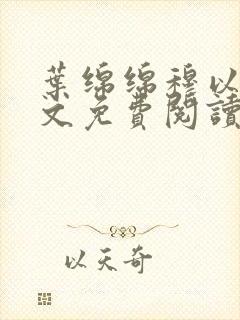 葉綿綿穆以
文免費閱讀
以天奇